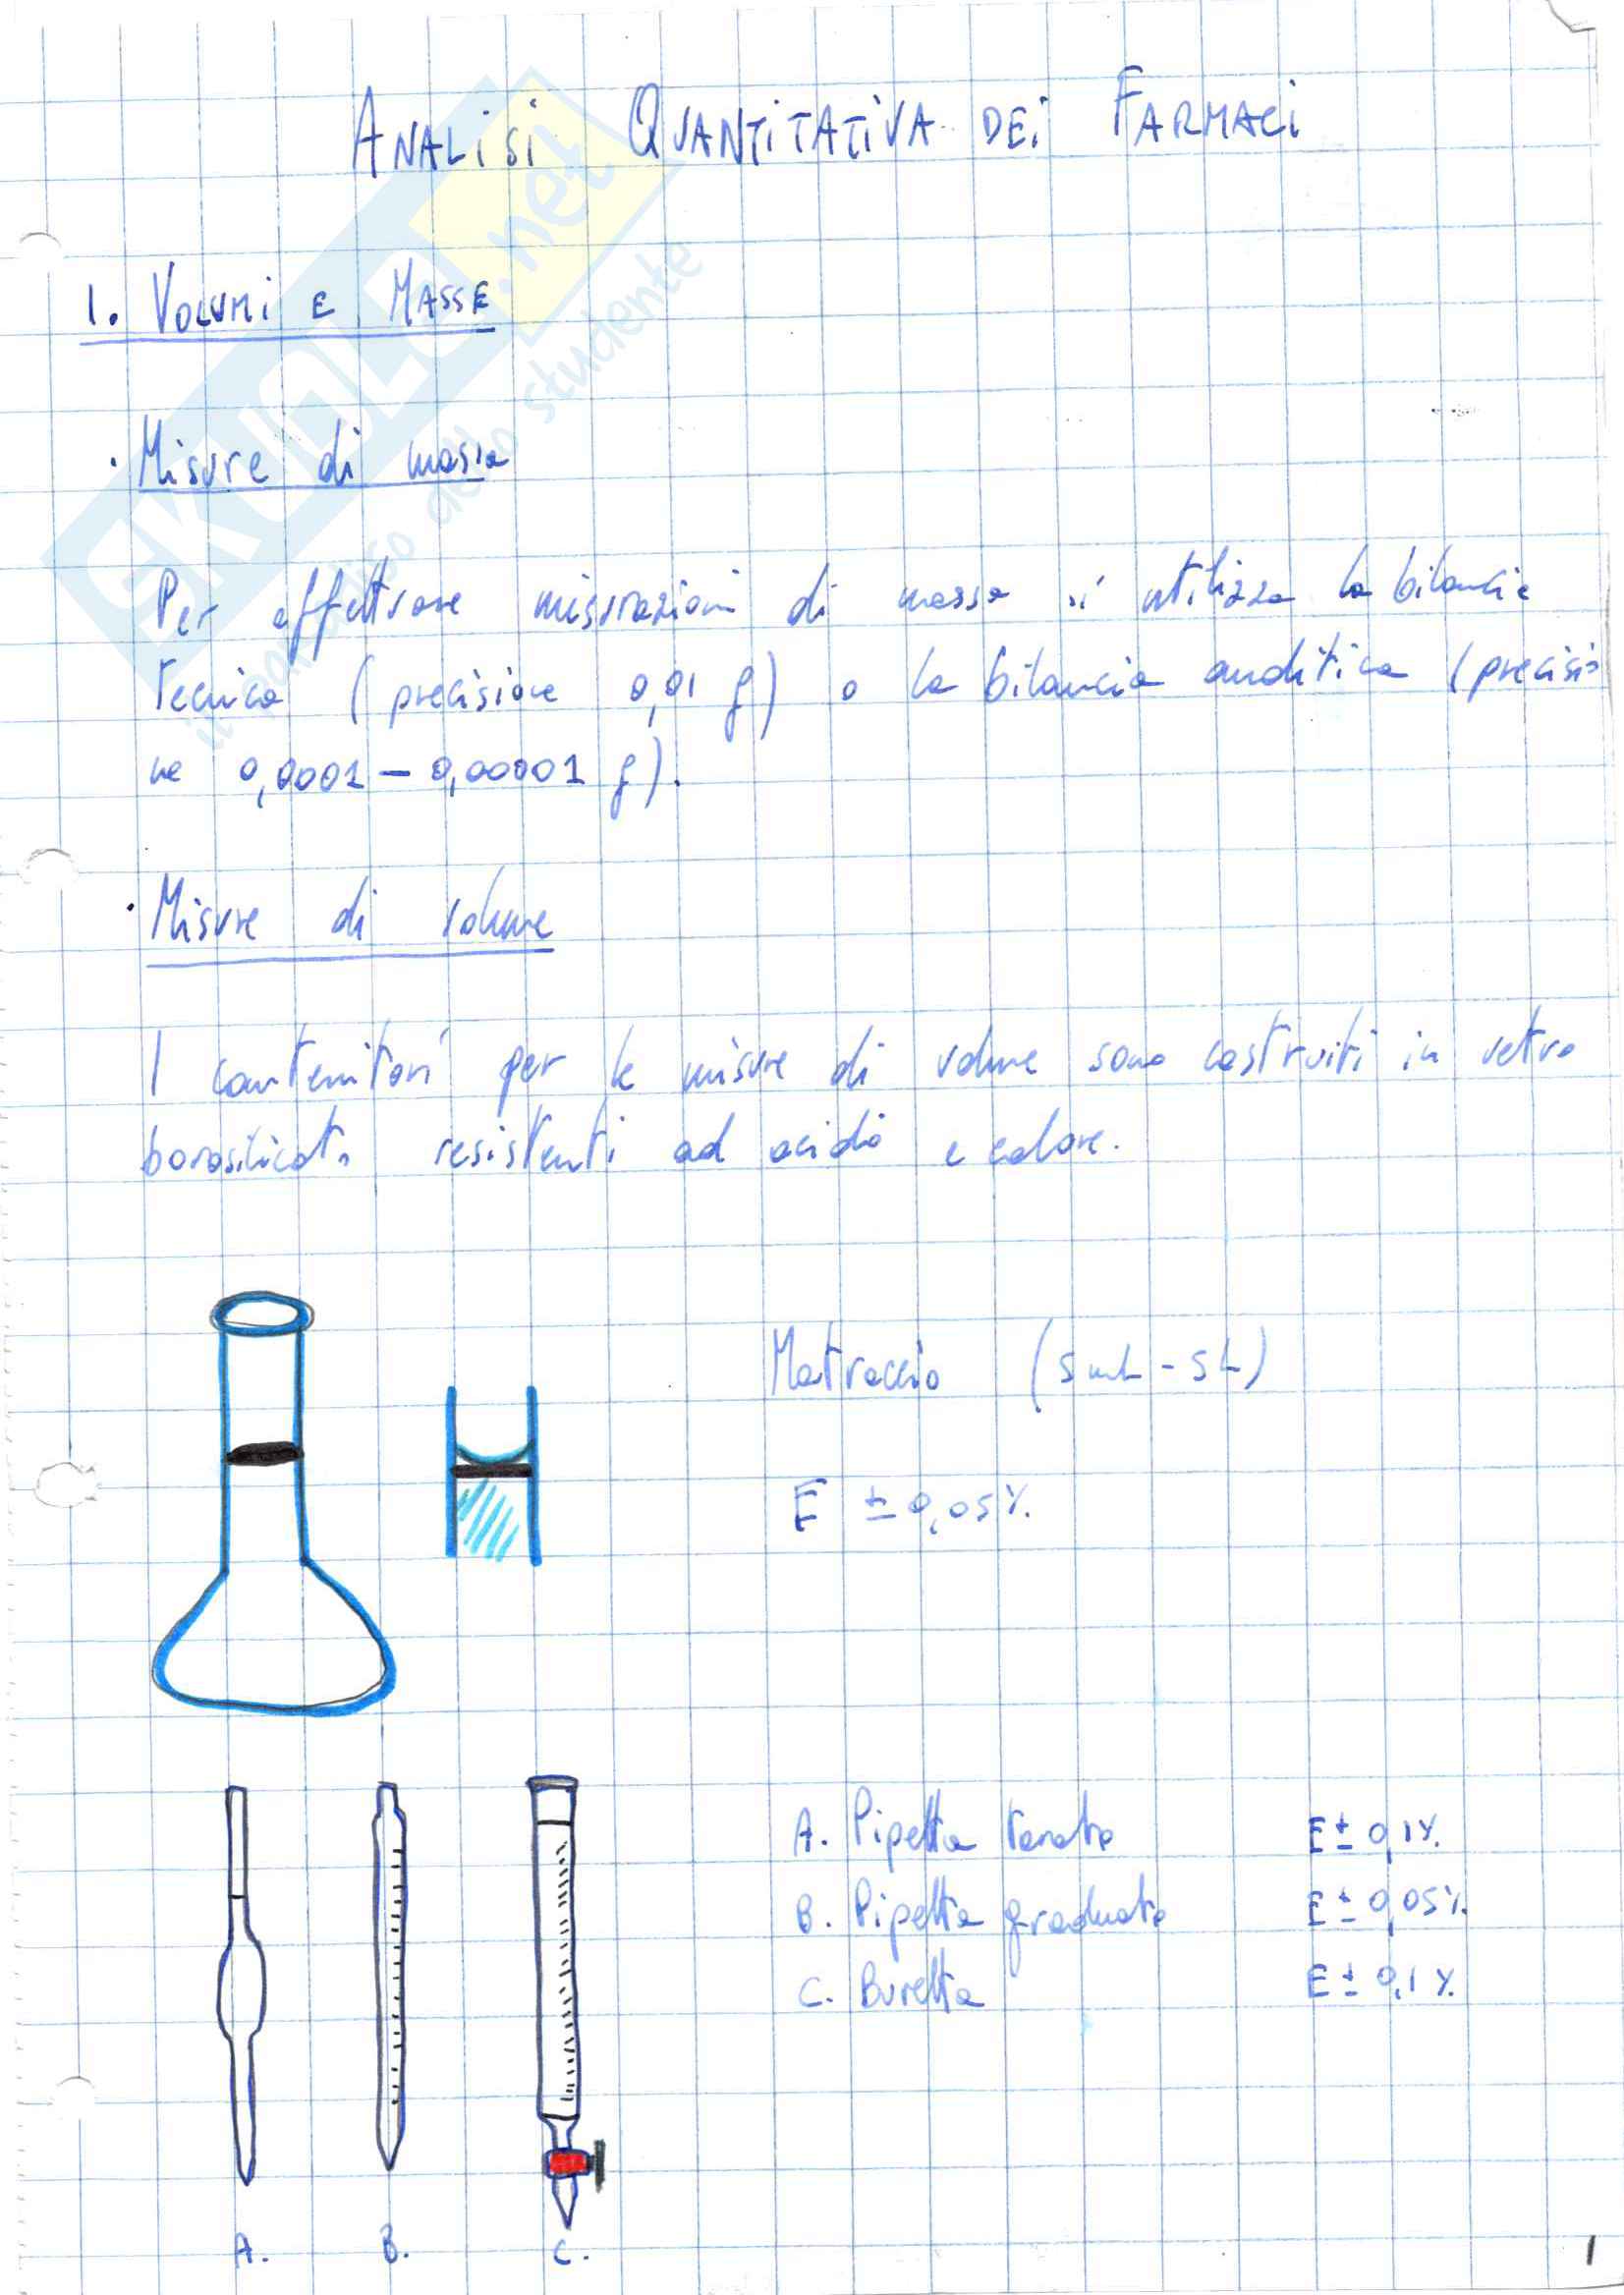 ANALISI QUANTITATIVA DEI FARMACI
1. VOLUMI E MASSE
· Misure di massa
Per effettuare misurazioni di massa si utilizza la bilancia
tecnica (precisione 0,01 g) o la bilancia analitica (precisio
ne 0,0001 – 0,00001 g).
· Misure di volume
I contenitori per le misure di volume sono costruiti in vetro
borosilicato resistenti ad acidi e calore.
Matraccio (5 mL - 5L)
E ± 0,05%
A. Pipetta tarata E ± 0,1%
B. Pipetta graduata E ± 0,05%
C. Buretta E ± 0,1%
A. B. C.
1
SKUOLA.net
il paradiso dello studente